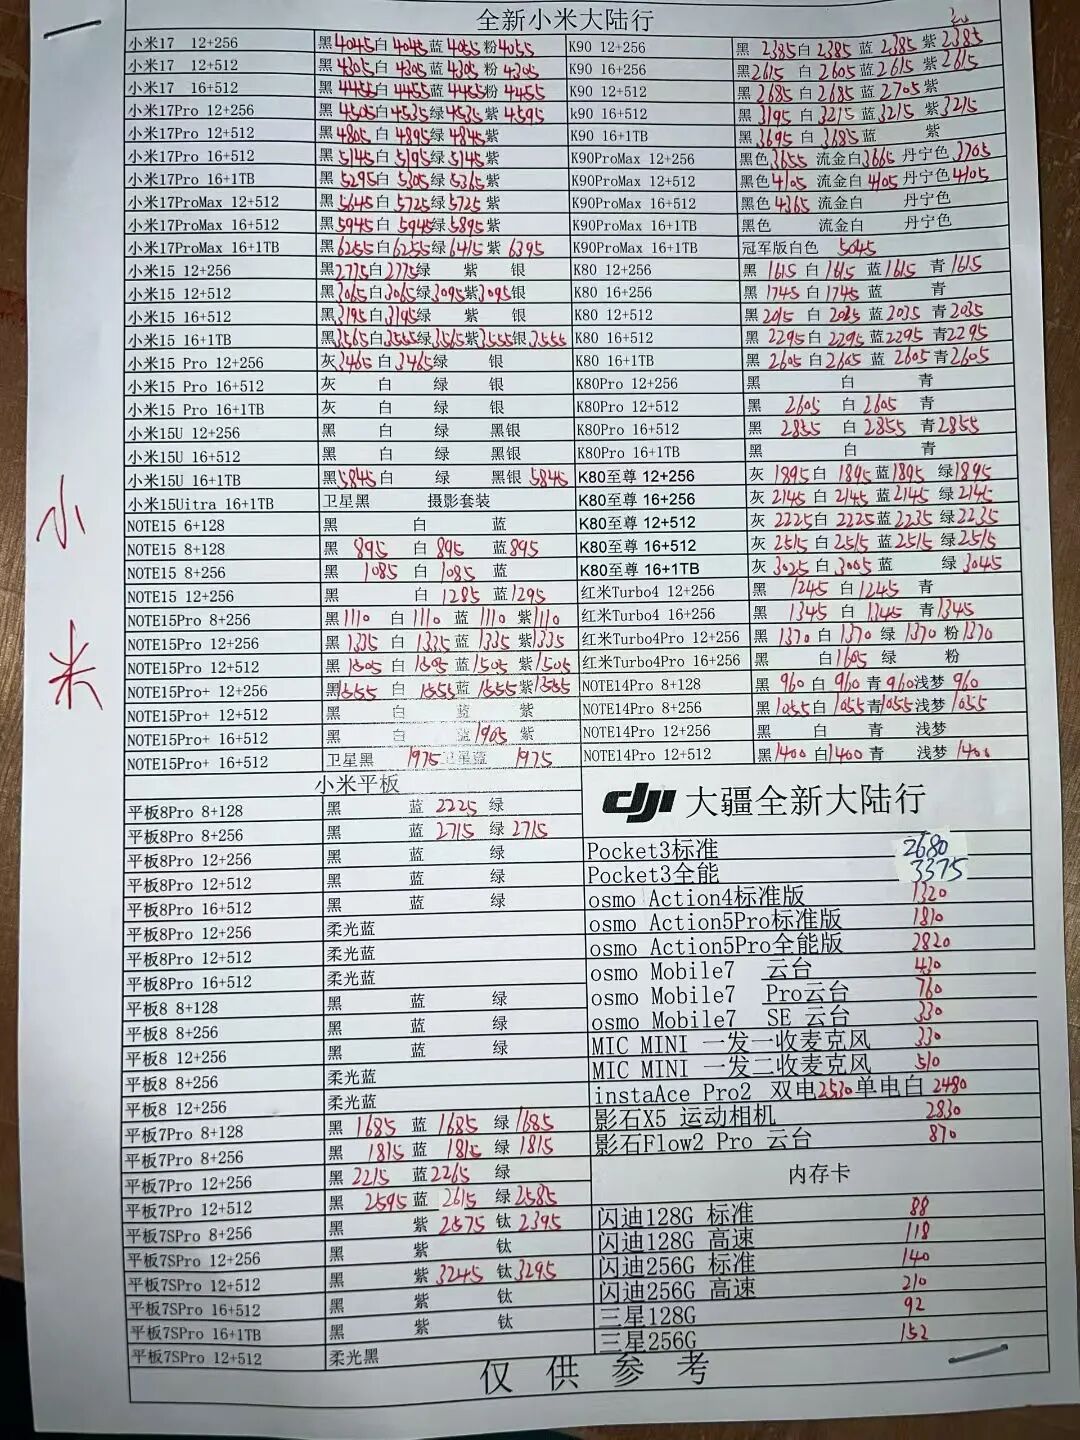 全新小米大陆行
小米17 12+256 黑4045白4045蓝4055粉4055
小米17 12+512 黑4305白4305蓝4305粉4305
小米17 16+512 黑4455白4455蓝4455粉4455
小米17Pro 12+256 黑4505白4535绿4535紫4595
小米17Pro 12+512 黑4805白4895绿4845紫
小米17Pro 16+512 黑5145白5195绿5145紫
小米17Pro 16+1TB 黑5295白5305绿5365紫
小米17ProMax 12+512 黑5645白5725绿5725紫
小米17ProMax 16+512 黑5945白5945绿5895紫
小米17ProMax 16+1TB 黑6255白6255绿6415紫6395
小米15 12+256 黑2775白2775绿 紫 银
小米15 12+512 黑3065白3065绿3095紫3095银
小米15 16+512 黑3195白3195绿 紫 银
小米15 16+1TB 黑3565白3555绿3565紫3555银3555
小米15 Pro 12+256 灰3465白3465绿 银
小米15 Pro 16+512 灰 白 绿 银
小米15 Pro 16+1TB 灰 白 绿 银
小米15U 12+256 黑 白 绿 黑银
小米15U 16+512 黑 白 绿 黑银
小米15U 16+1TB 黑5845白 绿 黑银5845
小米15Uitra 16+1TB 卫星黑 摄影套装
NOTE15 6+128 黑 白 蓝
NOTE15 8+128 黑895 白895 蓝895
NOTE15 8+256 黑1085 白1085 蓝
NOTE15 12+256 黑 白1285 蓝1295
NOTE15Pro 8+256 黑1110 白1110 蓝1110 紫1110
NOTE15Pro 12+256 黑1335 白1335 蓝1335 紫1335
NOTE15Pro 12+512 黑1505 白1505 蓝1505 紫1505
NOTE15Pro+ 12+256 黑1555 白1555 蓝1555 紫1555
NOTE15Pro+ 12+512 黑 白 蓝 紫
NOTE15Pro+ 16+512 黑 白 蓝1905 紫
NOTE15Pro+ 16+512 卫星黑 1975 卫星蓝 1975
K90 12+256 黑2385白2385蓝2385紫2385
K90 16+256 黑2615白2605蓝2615紫2615
K90 12+512 黑2685白2685蓝2705紫
k90 16+512 黑3195白3215蓝3215紫3215
K90 16+1TB 黑3695白3685蓝 紫
K90ProMax 12+256 黑色3655 流金白3665 丹宁色3705
K90ProMax 12+512 黑色4105 流金白4105 丹宁色4105
K90ProMax 16+512 黑色4365 流金白 丹宁色
K90ProMax 16+1TB 黑色 流金白 丹宁色
K90ProMax 16+1TB 冠军版白色 5045
K80 12+256 黑1615白1615蓝1615青1615
K80 16+256 黑1745白1745蓝 青
K80 12+512 黑2015白2035蓝2035青2035
K80 16+512 黑2295白2295蓝2295青2295
K80 16+1TB 黑2605白2605蓝2605青2605
K80Pro 12+256 黑 白 青
K80Pro 12+512 黑2605白2605 青
K80Pro 16+512 黑2855白2855青2855
K80Pro 16+1TB 黑 白 青
K80至尊 12+256 灰1895白1895蓝1895绿1895
K80至尊 16+256 灰2145白2145蓝2145绿2145
K80至尊 12+512 灰2225白2225蓝2235绿2235
K80至尊 16+512 灰2515白2515蓝2515绿2515
K80至尊 16+1TB 灰3025白3005蓝 绿3045
红米Turbo4 12+256 黑1245白1245 青
红米Turbo4 16+256 黑1345白1345青1345
红米Turbo4Pro 12+256 黑1370白1370绿1370粉1370
红米Turbo4Pro 16+256 黑 白1605绿 粉
NOTE14Pro 8+128 黑960白960青960浅梦960
NOTE14Pro 8+256 黑1055白1055青1055浅梦1055
NOTE14Pro 12+256 黑 白 青 浅梦
NOTE14Pro 12+512 黑1400白1400青 浅梦1400
小米
小米平板
平板8Pro 8+128 黑 蓝2225绿
平板8Pro 8+256 黑 蓝2715绿2715
平板8Pro 12+256 黑 蓝 绿
平板8Pro 12+512 黑 蓝 绿
平板8Pro 16+512 黑 蓝 绿
平板8Pro 12+256 柔光蓝
平板8Pro 12+512 柔光蓝
平板8Pro 16+512 柔光蓝
平板8 8+128 黑 蓝 绿
平板8 8+256 黑 蓝 绿
平板8 12+256 黑 蓝 绿
平板8 8+256 柔光蓝
平板8 12+256 柔光蓝
平板7Pro 8+128 黑1685蓝1685绿1685
平板7Pro 8+256 黑1815蓝1815绿1815
平板7Pro 12+256 黑2215蓝2265绿
平板7Pro 12+512 黑2595蓝2615绿2585
平板7SPro 8+256 黑 紫2575钛2395
平板7SPro 12+256 黑 紫 钛
平板7SPro 12+512 黑 紫3245钛3295
平板7SPro 16+512 黑 紫 钛
平板7SPro 16+1TB 黑 紫 钛
平板7SPro 12+512 柔光黑
dji 大疆全新大陆行
Pocket3标准 2680
Pocket3全能 3375
osmo Action4标准版 1320
osmo Action5Pro标准版 1810
osmo Action5Pro全能版 2820
osmo Mobile7 云台 430
osmo Mobile7 Pro云台 760
osmo Mobile7 SE 云台 330
MIC MINI 一发一收麦克风 330
MIC MINI 一发二收麦克风 510
instaAce Pro2 双电2530单电白2480
影石X5 运动相机 2830
影石Flow2 Pro 云台 870
内存卡
闪迪128G 标准 88
闪迪128G 高速 118
闪迪256G 标准 140
闪迪256G 高速 210
三星128G 92
三星256G 152
仅供参考